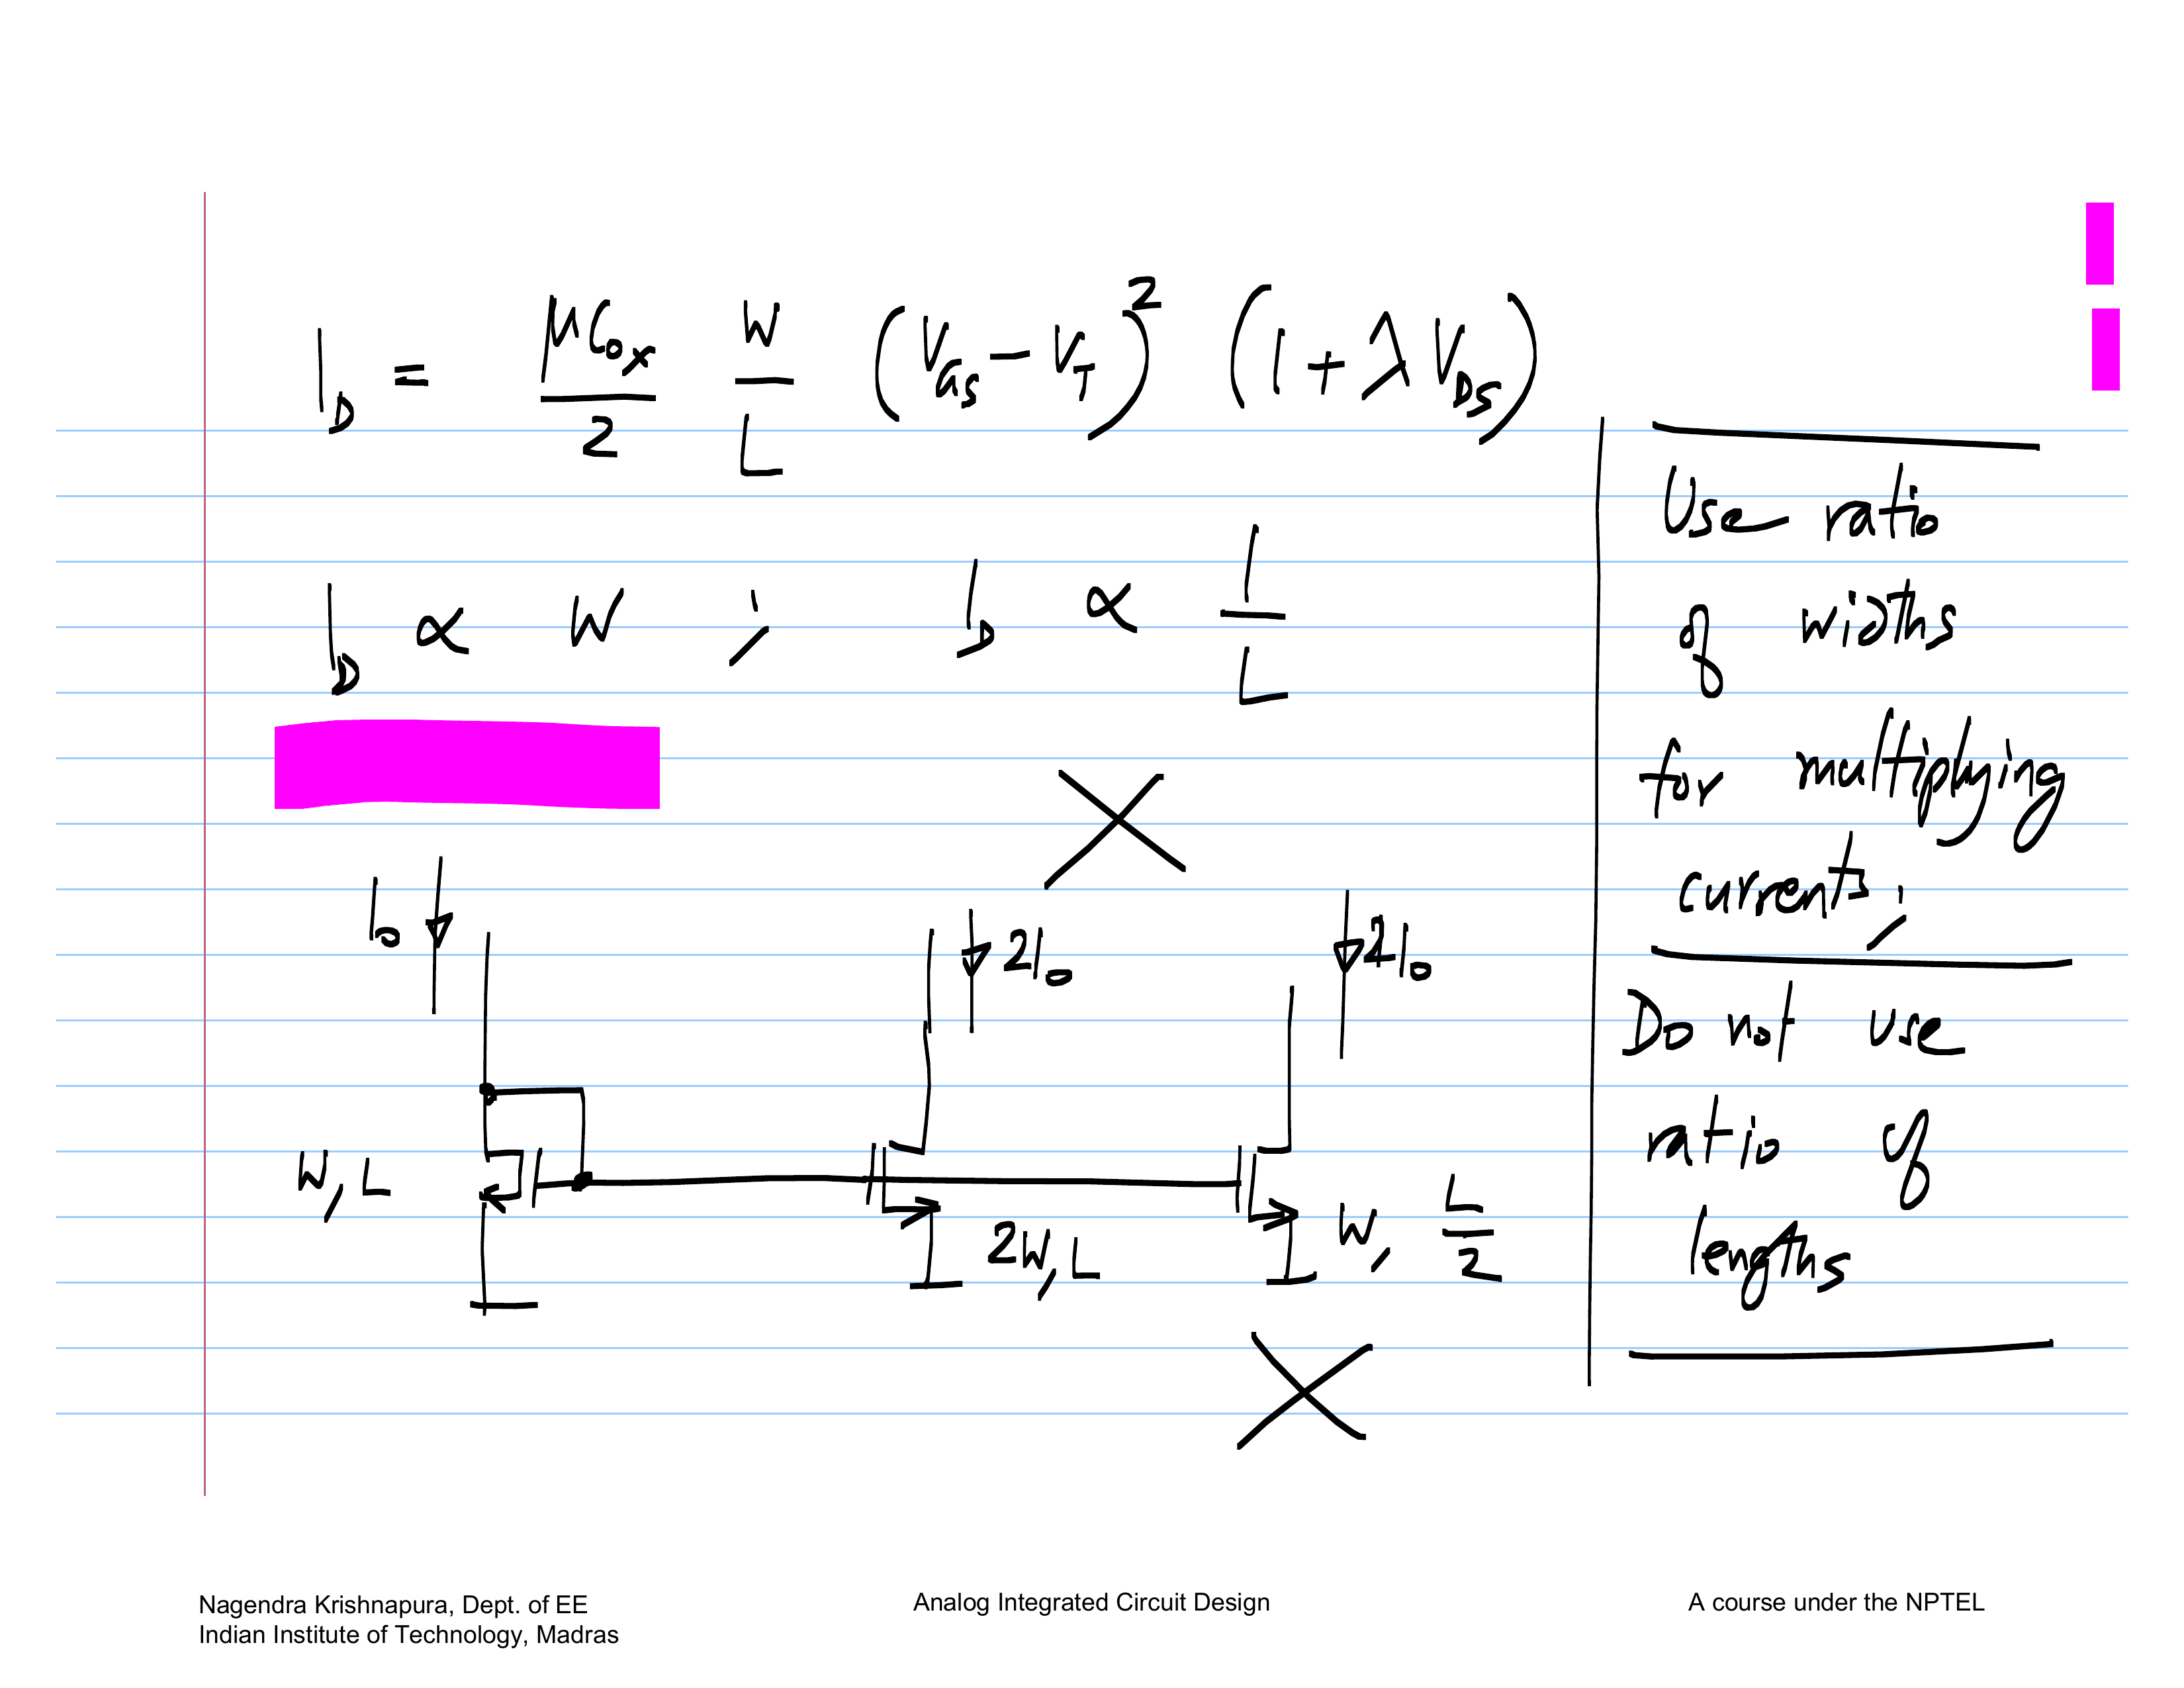 I_D = μC_ox/2 W/L (V_GS − V_T)² (1 + λV_DS)
I_D ∝ W ; I_D ∝ 1/L
I_0 2I_0 2I_0
W, L 2W, L W, L/2
Use ratio
of widths
for multiplying
currents;
Do not use
ratio of
lengths
Nagendra Krishnapura, Dept. of EE
Indian Institute of Technology, Madras
Analog Integrated Circuit Design
A course under the NPTEL